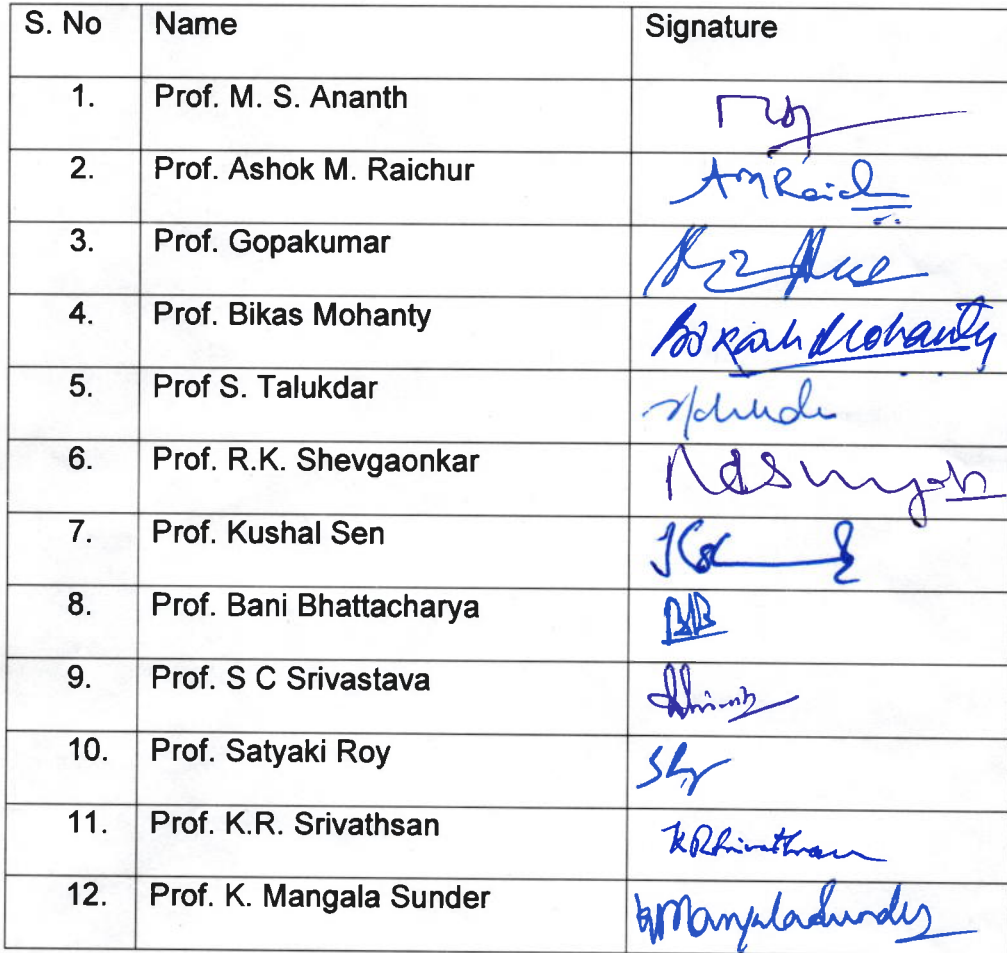 S. No Name Signature
1. Prof. M. S. Ananth
2. Prof. Ashok M. Raichur AMRaich
3. Prof. Gopakumar
4. Prof. Bikas Mohanty Bikash Mohanty
5. Prof S. Talukdar
6. Prof. R.K. Shevgaonkar
7. Prof. Kushal Sen
8. Prof. Bani Bhattacharya BB
9. Prof. S C Srivastava
10. Prof. Satyaki Roy SRoy
11. Prof. K.R. Srivathsan KRSrivathsan
12. Prof. K. Mangala Sunder KMangalaSunder